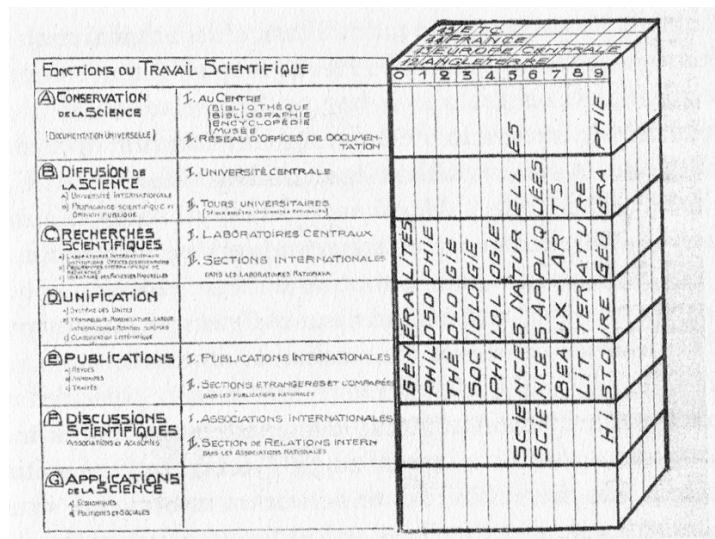 13 ETC
12 FRANCE
13 EUROPE CENTRALE
12 ANGLETERRE
0 1 2 3 4 5 6 7 8 9
FONCTIONS DU TRAVAIL SCIENTIFIQUE
A CONSERVATION
DE LA SCIENCE
(DOCUMENTATION UNIVERSELLE)
I. AU CENTRE
BIBLIOTHÈQUE
BIBLIOGRAPHIE
ENCYCLOPÉDIE
MUSÉE
II. RÉSEAU D'OFFICES DE DOCUMEN-
TATION
B DIFFUSION DE
LA SCIENCE
a) UNIVERSITÉ INTERNATIONALE
b) PROPAGANDE SCIENTIFIQUE ET
OPINION PUBLIQUE
I. UNIVERSITÉ CENTRALE
II. TOURS UNIVERSITAIRES
C RECHERCHES
SCIENTIFIQUES
a) LABORATOIRES INTERNATIONAUX
I. LABORATOIRES CENTRAUX
II. SECTIONS INTERNATIONALES
DANS LES LABORATOIRES NATIONAUX
D UNIFICATION
a) SYSTÈME DES UNITÉS
c) CLASSIFICATION SYSTÉMATIQUE
E PUBLICATIONS
a) REVUES
b) ANNUAIRES
c) TRAITÉS
I. PUBLICATIONS INTERNATIONALES
II. SECTIONS ETRANGERES ET COMPARÉES
DANS LES PUBLICATIONS NATIONALES
F DISCUSSIONS
SCIENTIFIQUES
ASSOCIATIONS ET ACADÉMIES
I. ASSOCIATIONS INTERNATIONALES
II. SECTION DE RELATIONS INTERN
DANS LES ASSOCIATIONS NATIONALES
G APPLICATIONS
DE LA SCIENCE
a) ECONOMIQUES
b) POLITIQUES ET SOCIALES
GÉNÉRALITÉS
PHILOSOPHIE
THÉOLOGIE
SOCIOLOGIE
PHILOLOGIE
SCIENCES NATURELLES
SCIENCES APPLIQUÉES
BEAUX ARTS
LITTERATURE
HISTOIRE GÉOGRAPHIE